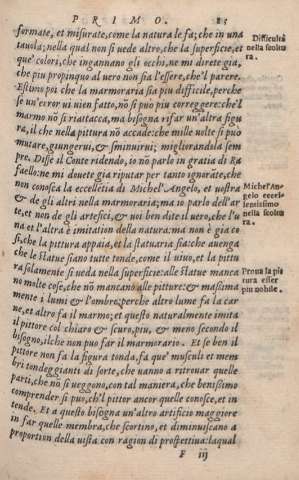 P R I M O. 83
formate, et misurate, come la natura le fa; che in una
tauola; nella qual non si uede altro, che la superficie, et
que' colori, che ingannano gli occhi, ne mi direte gia,
che piu propinquo al uero non sia l'essere, che'l parere.
Estimo poi che la marmoraria sia piu difficile, perche
se un'error ui uien fatto, nõ si puo piu correggere: che'l
marmo nõ si riattacca, ma bisogna rifar un'altra figu
ra, il che nella pittura nõ accade: che mille uolte si puo
mutare, giungerui, & sminuirui; migliorandola sem
pre. Disse il Conte ridendo, io nõ parlo in gratia di Ra
faello: ne mi douete gia riputar per tanto ignorãte, che
non conosca la eccellẽtia di Michel'Angelo, et uostra
& de gli altri nella marmoraria; ma io parlo dell'ar
te, et non de gli artefici, & uoi ben dite il uero, che l'u
na et l'altra è imitation della natura: ma non è gia co
si, che la pittura appaia, et la statuaria sia: che auenga
che le statue siano tutte tonde, come il uiuo, et la pittu
ra solamente si ueda nella superficie: alle statue manca
no molte cose, che nõ mancano alle pitture: & massima
mente i lumi & l'ombre; perche altro lume fa la car
ne, et altro fa il marmo; et questo naturalmente imita
il pittore col chiaro & scuro, piu, & meno secondo il
bisogno, ilche non puo far il marmorario. Et se ben il
pittore non fa la figura tonda, fa que' musculi et mem
bri tondeggianti di sorte, che uanno a ritrouar quelle
parti, che nõ si ueggono, con tal maniera, che benissimo
comprender si puo, ch'l pittor ancor quelle conosce, et in
tende. Et a questo bisogna un'altro artificio maggiore
in far quelle membra, che scortino, et diminuiscano a
proportion della uista con ragion di prospettiua: laqual
F iij
Difficultà
nella scoltu
ra.
Michel'An
gelo eccel
lentissimo
nella scoltu
ra.
Proua la pit
tura esser
piu nobile.